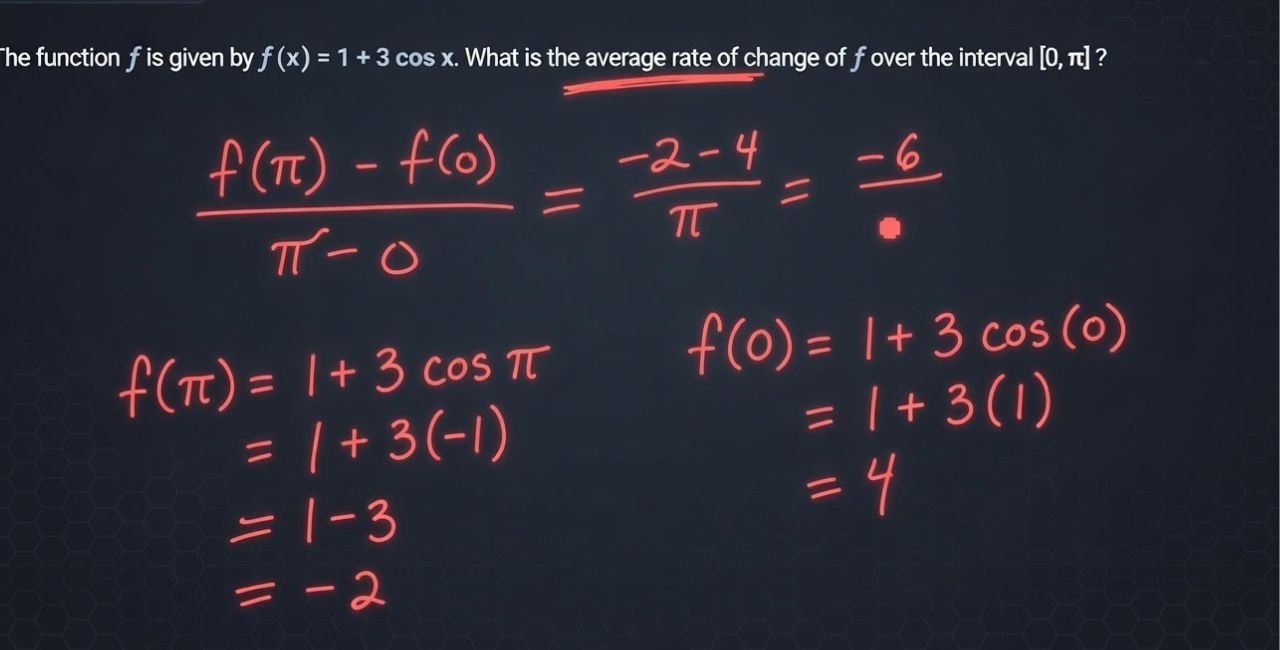 The function f is given by f (x) = 1 + 3 cos x. What is the average rate of change of f over the interval [0, π] ?
f(π) - f(0) / π - 0 = -2 - 4 / π = -6 /
f(π) = 1 + 3 cos π
= 1 + 3(-1)
= 1 - 3
= -2
f(0) = 1 + 3 cos (0)
= 1 + 3(1)
= 4